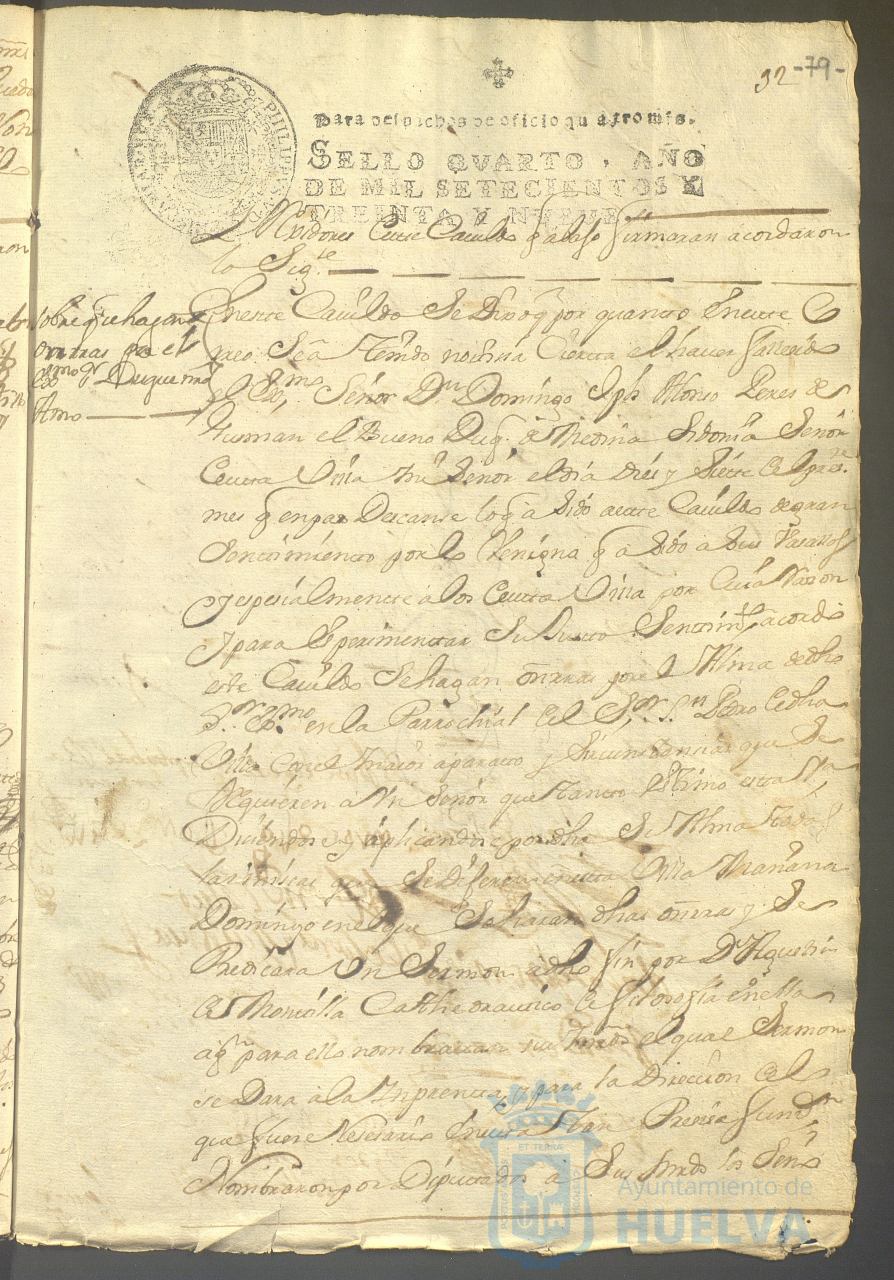 32 -79-
Para despachos de oficio quatro mrs.
SELLO QVARTO, AÑO
DE MIL SETECIENTOS Y
TREINTA Y NUEVE
este Cavildo q avajo firmaran acordaron
lo Sigte
Sobre q se hagan
onrras por el
Exmo Sr Duque mi
Amo
En este Cavildo Se Dixo q por quanto En este
Correo Se a tenido noticia Cierta el haver fallecido
el Exmo Señor Dn Domingo Jph Alonso Peres de
Gusman el Bueno Duq. de Medina Sidonia Señor
De esta Villa mi Señor el dia Dies y Siete del pres.te
mes q en pas Descanse lo q a Sido a este Cavildo de gran
Sentimiento por lo Venigna q a Sido a sus Vasallos
y espesialmente a los de esta Villa por Cuia Rason
y para Esperimentar Su Justo Sentimto acordó
este Cavildo Se hagan onrras por el Alma de dho
Sr Exmo en la Parrochial del Sor Sn Pedro de dha
Villa con el maior aparato y Sircunstancias que Se
Requieren a Un Señor que tanto Estimo esta Va
Disiendose y aplicandose por dha Su Alma todas
las misas q Se Dijeren en esta Villa Mañana
Domingo en el que Se haran dhas onrras y Se
Predicara Un Sermon a dho fin por Dn Agustin
de Montilla Cathedratico de filosofia en ella
a q para ello nombravan sus mrds el qual Sermon
se Dara a la Inprenta y para la Direccion del
que fuere Nesesario En esta tan Presisa funson
Nombraron por Diputados a Sus mrds los Sens
Ayuntamiento de
HUELVA